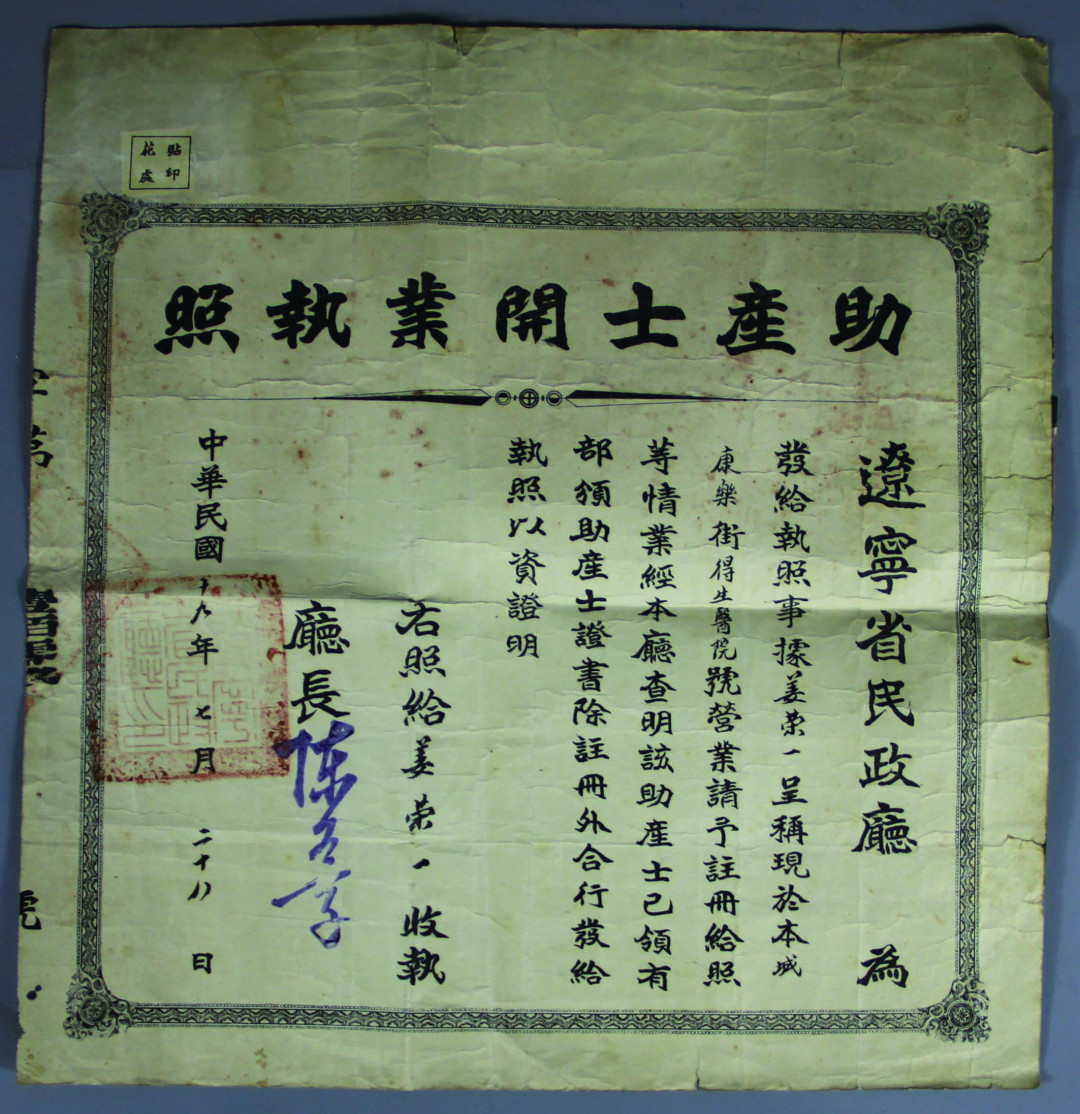 貼印
花處
助產士開業執照
遼寧省民政廳 為
發給執照事據姜荣一呈稱現於本城
康樂街得生醫院號營業請予註冊給照
等情業經本廳查明該助產士已領有
部頒助產士證書除註冊外合行發給
執照以資證明
右照給姜荣一收執
廳長
中華民國十九年七月二十八日
號